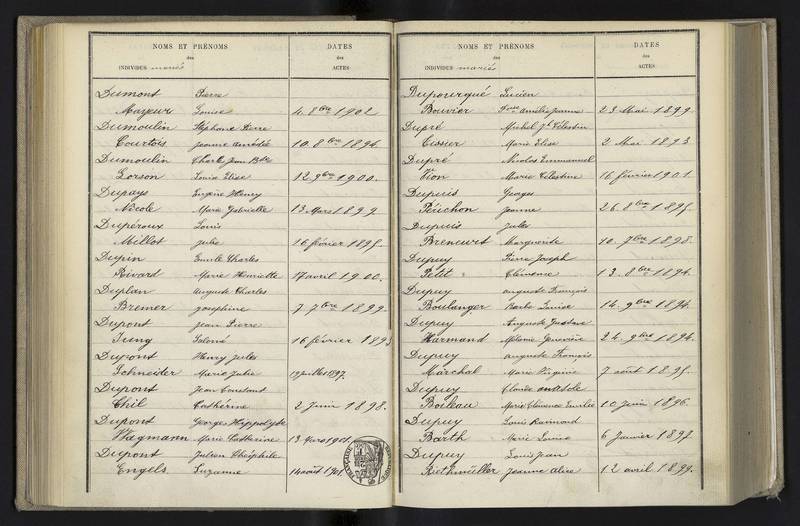 NOMS ET PRÉNOMS DATES
des des
INDIVIDUS mariés ACTES
Dumont Pierre
Mayeur Louise 4. 8bre 1902
Dumoulin Stéphane Pierre
Courtois Jeanne Amédée 10. 8bre 1894.
Dumoulin Charles Jean Bte
Lorson Louise Elise 12 9bre 1900.
Dupays Eugène Henry
Nicole Marie Gabrielle 13 Mars 1899
Dupéroux Louis
Millot Julie 16 février 1895.
Dupin Emile Charles
Rivard Marie Henriette 17 avril 1900.
Duplan Auguste Charles
Bremer Joséphine 7 7bre 1899.
Dupont Jean Pierre
Jung Salomé 16 février 1893
Dupont Henry Jules
Schneider Marie Julie juillet 1897.
Dupont Jean Constant
Chil Cathérine 2 Juin 1898.
Dupont Georges Hippolyte
Wagmann Marie Catherine 13 Mars 1901.
Dupont Julien Théophile
Engels Suzanne 14 août 1901.
NOMS ET PRÉNOMS DATES
des des
INDIVIDUS mariés ACTES
Dupourqué Lucien
Bouvier Amélie Jeanne 23 Mai 1899.
Dupré Michel Jh Célestin
Cissier Marie Elise 2 Mai 1893
Dupré Nicolas Emmanuel
Vion Marie Célestine 16 février 1901.
Dupuis Georges
Périchon Jeanne 26. 8bre 1895.
Dupuis Jules
Breneuret Marguerite 10. 7bre 1898.
Dupuy Pierre Joseph
Petit Clémence 13. 8bre 1894.
Dupuy Auguste François
Boulanger Louise 14. 9bre 1894.
Dupuy Auguste Gustave
Harmand Mélanie Geneviève 24. 9bre 1894.
Dupuy Auguste François
Maréchal Marie Virginie 7 août 1895.
Dupuy Claude Anatole
Boileau Marie Clémence Emilie 10 Juin 1896.
Dupuy Louis Raimond
Barth Marie Louise 6 Janvier 1897.
Dupuy Louis Jean
Riethmüller Jeanne Alice 12 avril 1899.